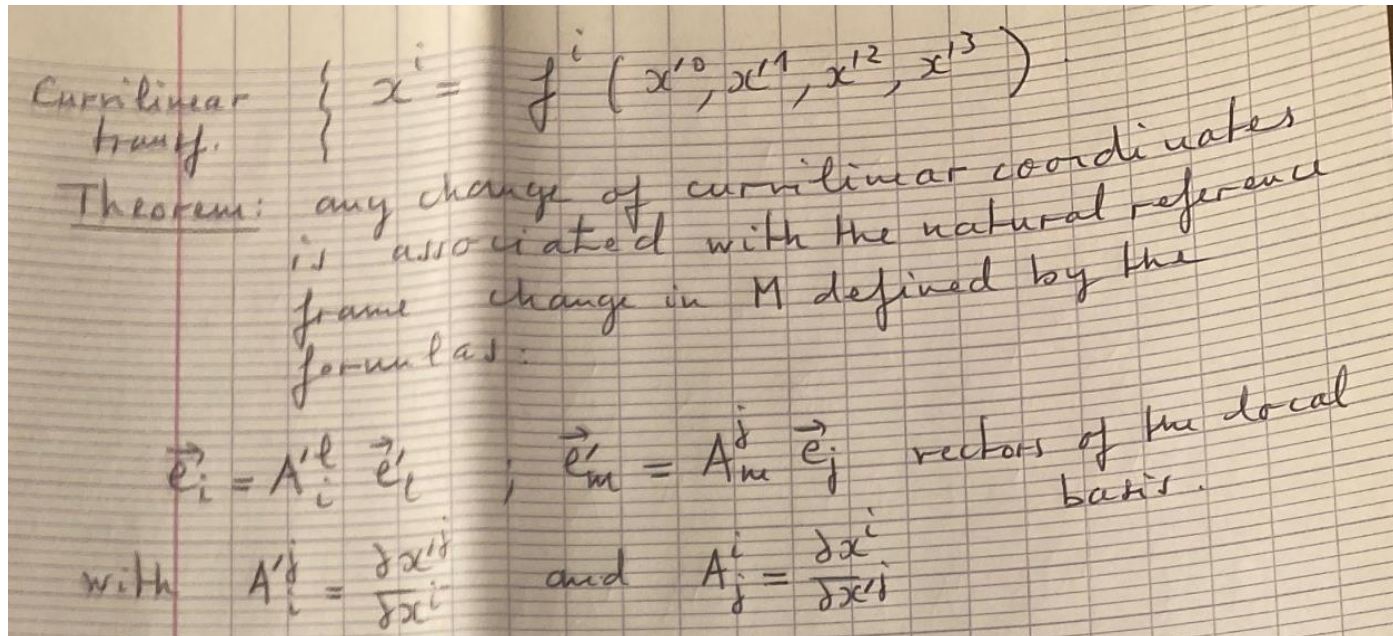 Curvilinear transf. { xⁱ = fⁱ ( x'⁰, x'¹, x'², x'³ )
Theorem: any change of curvilinear coordinates
is associated with the natural reference
frame change in M defined by the
formulas:
e⃗ᵢ = A'ᵢˡ e⃗'ₗ ; e⃗'ₘ = Aₘʲ e⃗ⱼ vectors of the local
basis.
with A'ᵢʲ = ∂x'ʲ/∂xⁱ and Aⱼⁱ = ∂xⁱ/∂x'ʲ